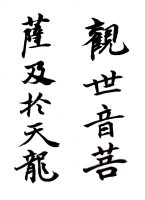 觀世音菩
薩及於天龍